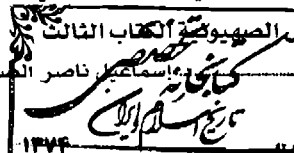 الصهيونية الكتاب الثالث
إسماعيل ناصر الص
کتابخانه تخصصی
تاریخ اسلام و ایران
۱۳۷۴